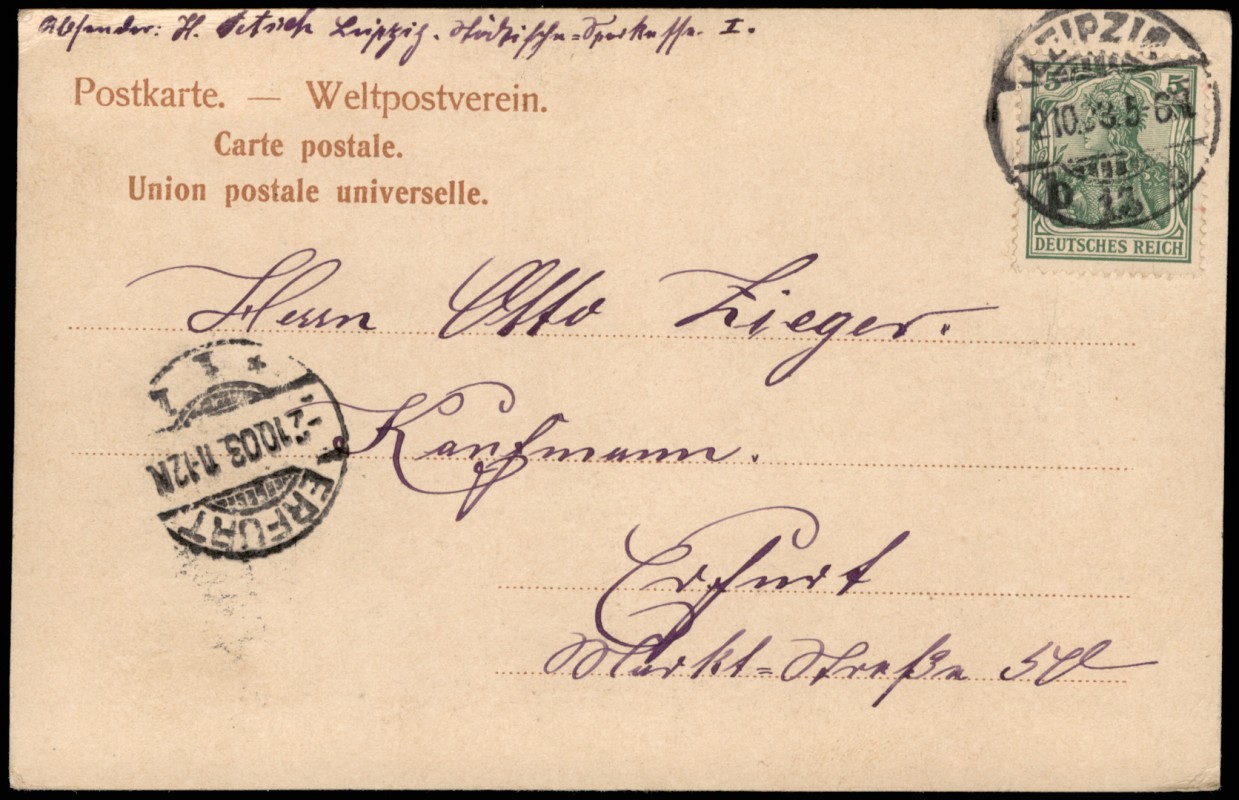 Absender: H. Petsch Leipzig. Städtische-Sparkasse. I.
Postkarte. — Weltpostverein.
Carte postale.
Union postale universelle.
LEIPZIG
-2.10.03.5-6N
13
5 5
DEUTSCHES REICH
Herrn Otto Zieger.
Kaufmann.
Erfurt
Markt=Straße 50
ERFURT
1 1 *
-2.10.03.11-12N